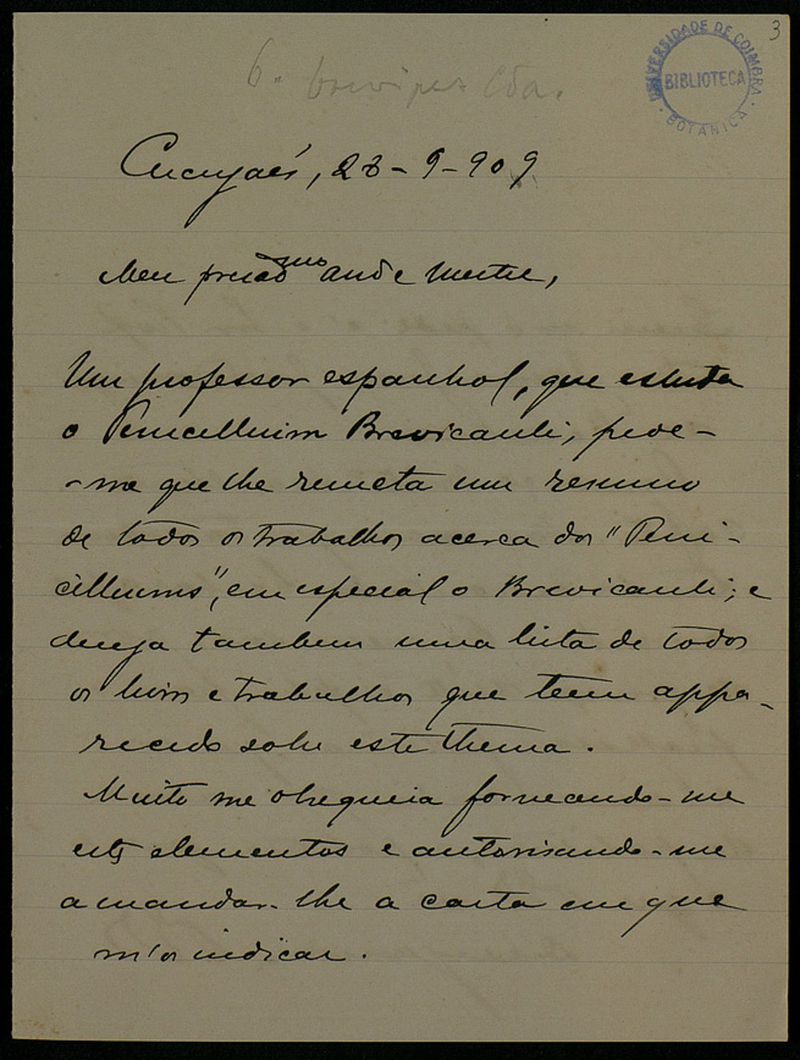 3
UNIVERSIDADE DE COIMBRA
BIBLIOTECA
BOTANICA
6.
, 28-9-909
Meu presad^mo and e Mestre,
Um professor espanhol, que estuda
o Penicillium Brevicauli, pede-
-me que lhe remeta um resumo
de todos os trabalhos acerca dos "Peni-
cilliums", em especial o Brevicauli; e
deseja tambem uma lista de todos
os livros e trabalhos que teem appa-
recido sobre este thema.
Muito me obsequeia fornecendo-me
estes elementos e autorisando-me
a mandar-lhe a carta em que
m'os indicar.